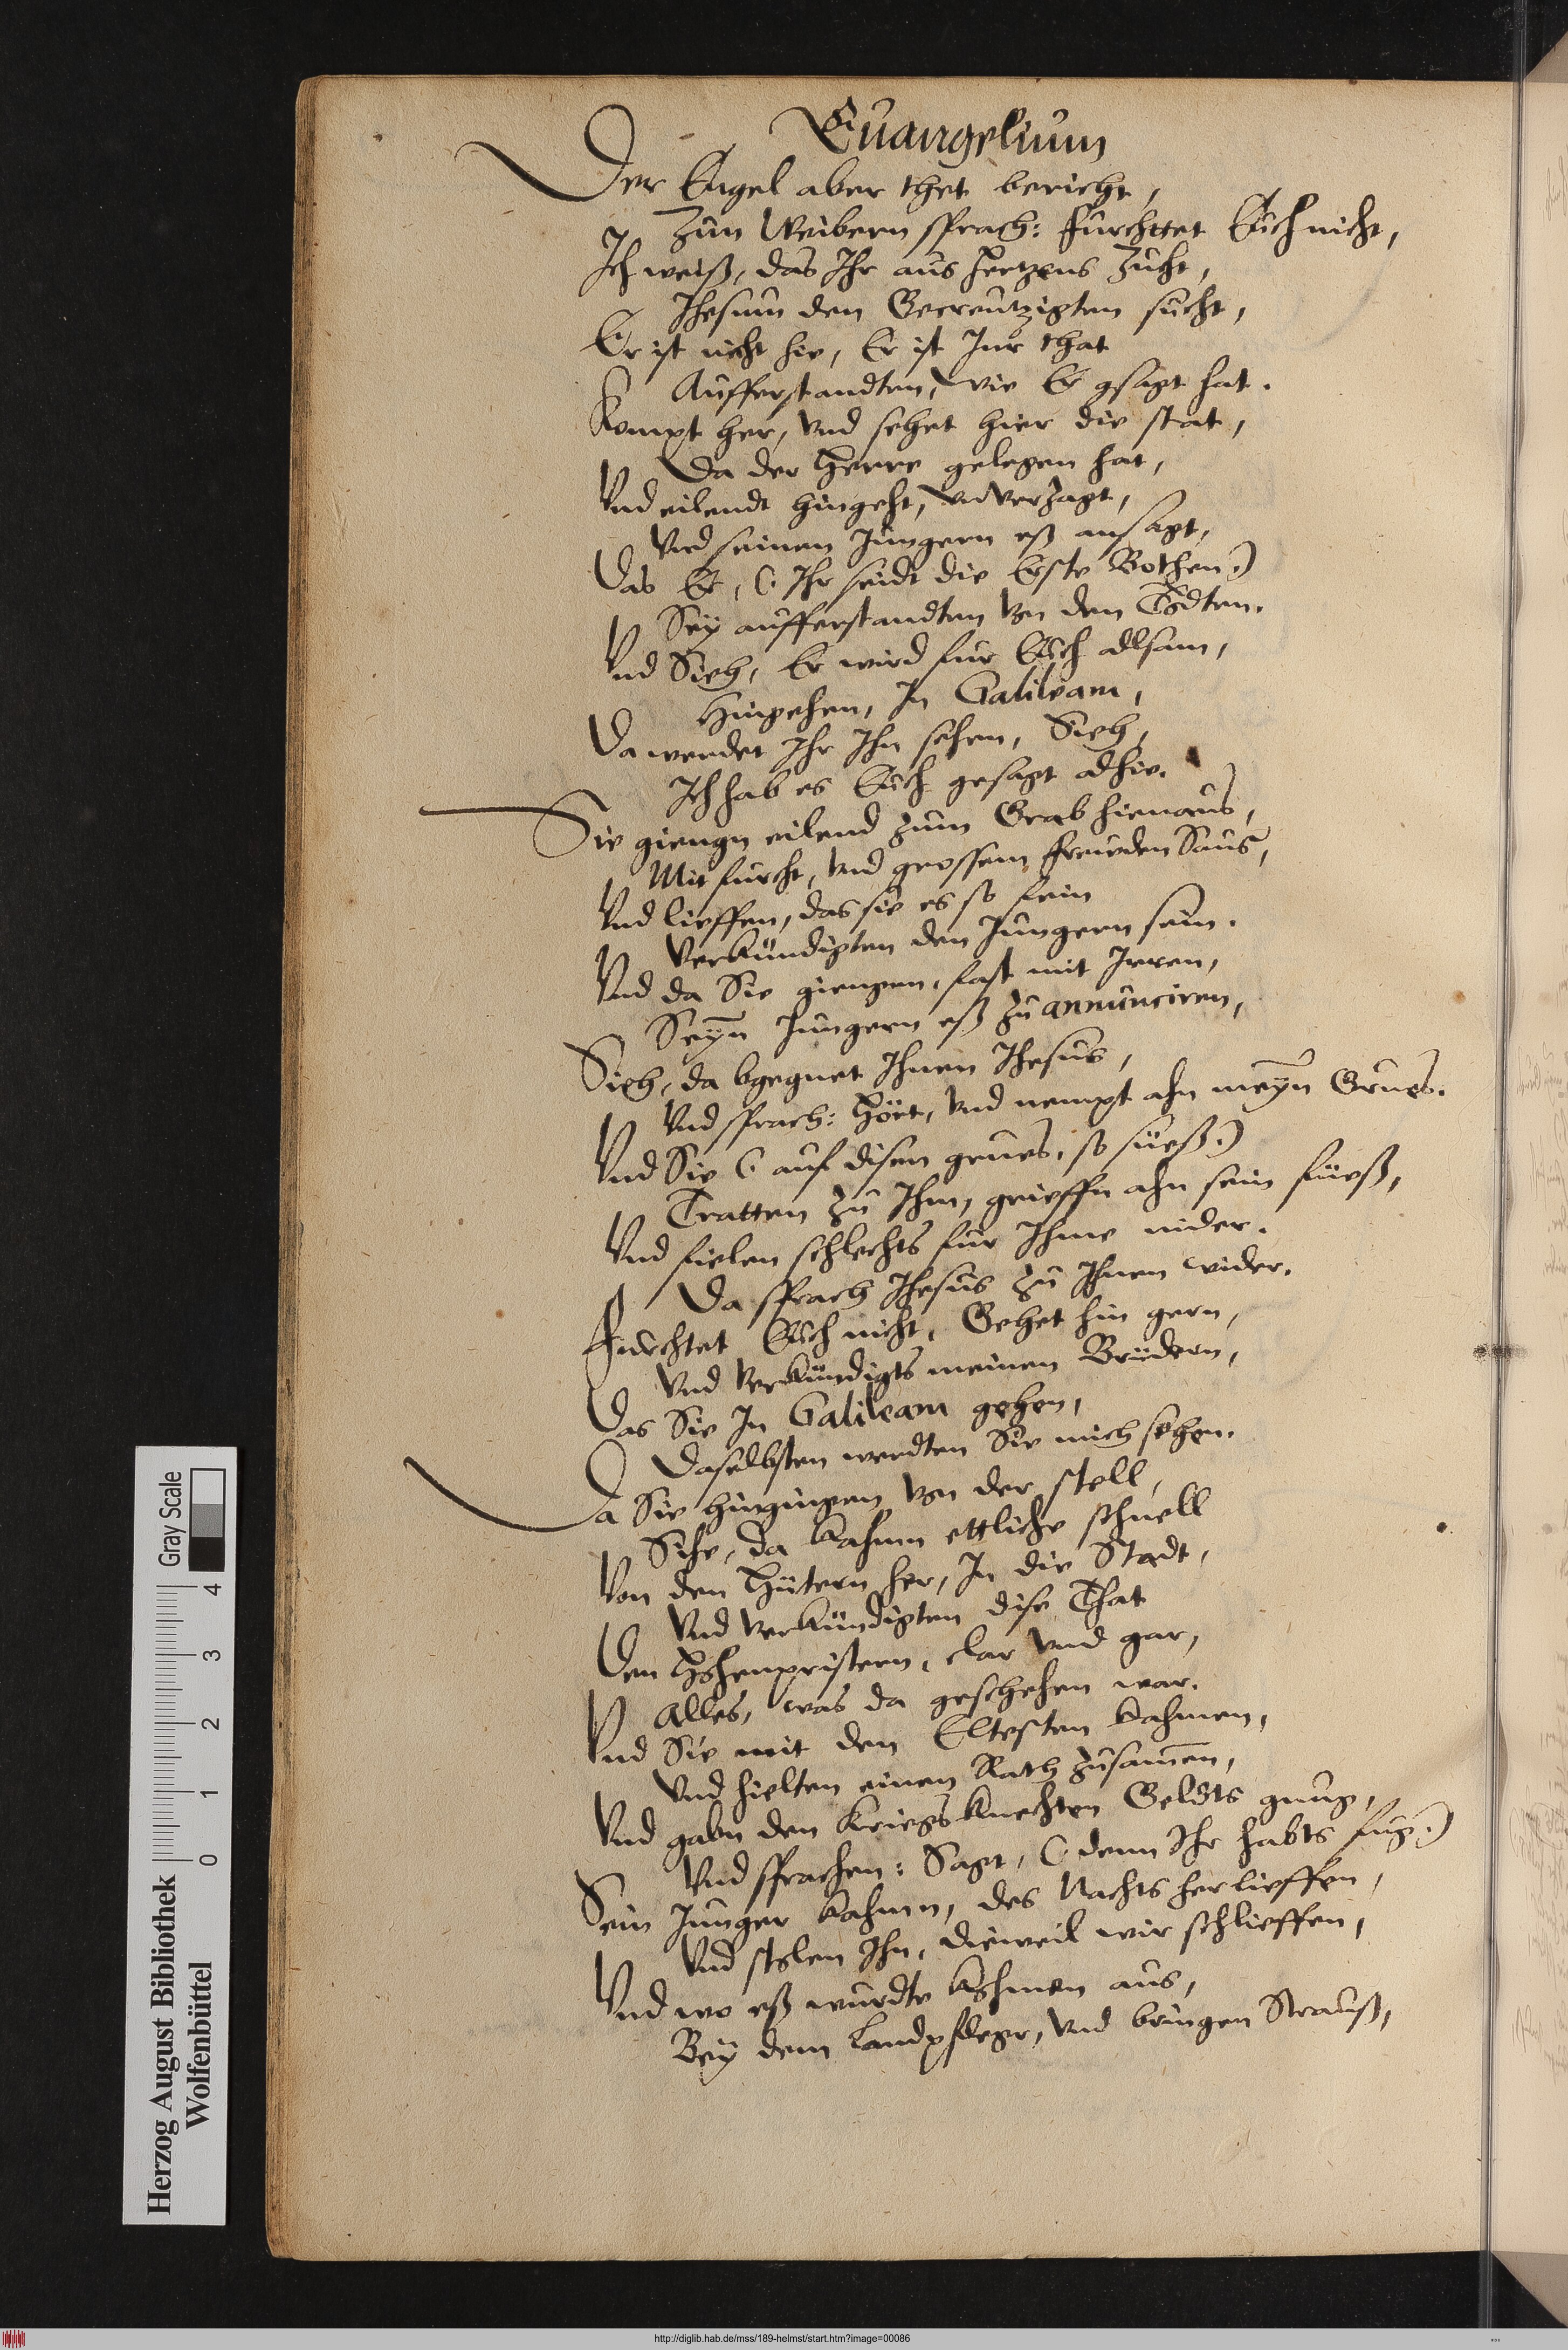 Euangelium
Der Engel aber thet bericht,
Zun Weibern sprach: Furchttet Euch nicht,
Ich weiß, das Ihr aus hertzens Zucht,
Ihesum den Gecreutzigten sucht,
Er ist nicht hie, Er ist Inn der that
Aufferstandten, wie Er gsagt hat.
Kompt her, vnd sehet hier die stat,
Da der Herre gelegen hat,
Vnd eilendt hingeht, vnverzagt,
Vnd seinen Jüngern eß ansagt,
Das Er, (Ihr seidt die Erste Bothen)
Sey aufferstandten von den Todten.
Vnd Sieh, Er wird fur Euch allsam,
Hingehen, In Galileam,
Da werdet Ihr Ihn sehen, Sieh,
Ich hab es Euch gesagt alhie.
Sie giengn eilend zum Grab hienaus,
Mit furcht, vnd grossem freuden Saus,
Vnd lieffen, das sie es so fein
Verkündigten den Jungern sein.
Vnd da Sie giengen, fast mit Irren,
Seyn Jungern eß zu annunciren,
Sieh, da bgegnet Ihnen Ihesus,
Vnd sprach: Hört, vnd nempt ahn meyn Grues.
Vnd Sie (auf disen grues, so süeß)
Tratten zu Ihm, grieffn ahn sein füeß,
Vnd fielen schlechts für Ihme nider.
Da sprach Ihesus zu Ihnen wider.
Furchtet Euch nicht, Gehet hin gern,
Vnd Verkündigts meinen Brüdern,
Das Sie In Galileam gehen,
Daselbsten werdten Sie mich sehen.
Da Sie hingingen von der stell,
Sihe, da kahmn ettliche schnell
Von den Hütern her, In die Stadt,
Vnd Verkündigten dise That
Den Hohenpristern, clar vnd gar,
Alles, was da geschehen war.
Vnd Sie mit den Eltesten kahmen,
Vnd hielten einen Rath zusam̄en,
Vnd gabn den Kriegsknechten Geldts gnug,
Vnd sprachen: Sagt, (denn Ihr habts fug)
Sein Junger kahmn, des Nachts her lieffen,
Vnd stolen Ihn, dieweil wir schlieffen,
Vnd wo eß wurdte kohmen aus,
Bey dem Landpfleger, vnd bringen Strauß,
Herzog August Bibliothek
Wolfenbüttel
0 1 2 3 4
Gray Scale
http://diglib.hab.de/mss/189-helmst/start.htm?image=00086